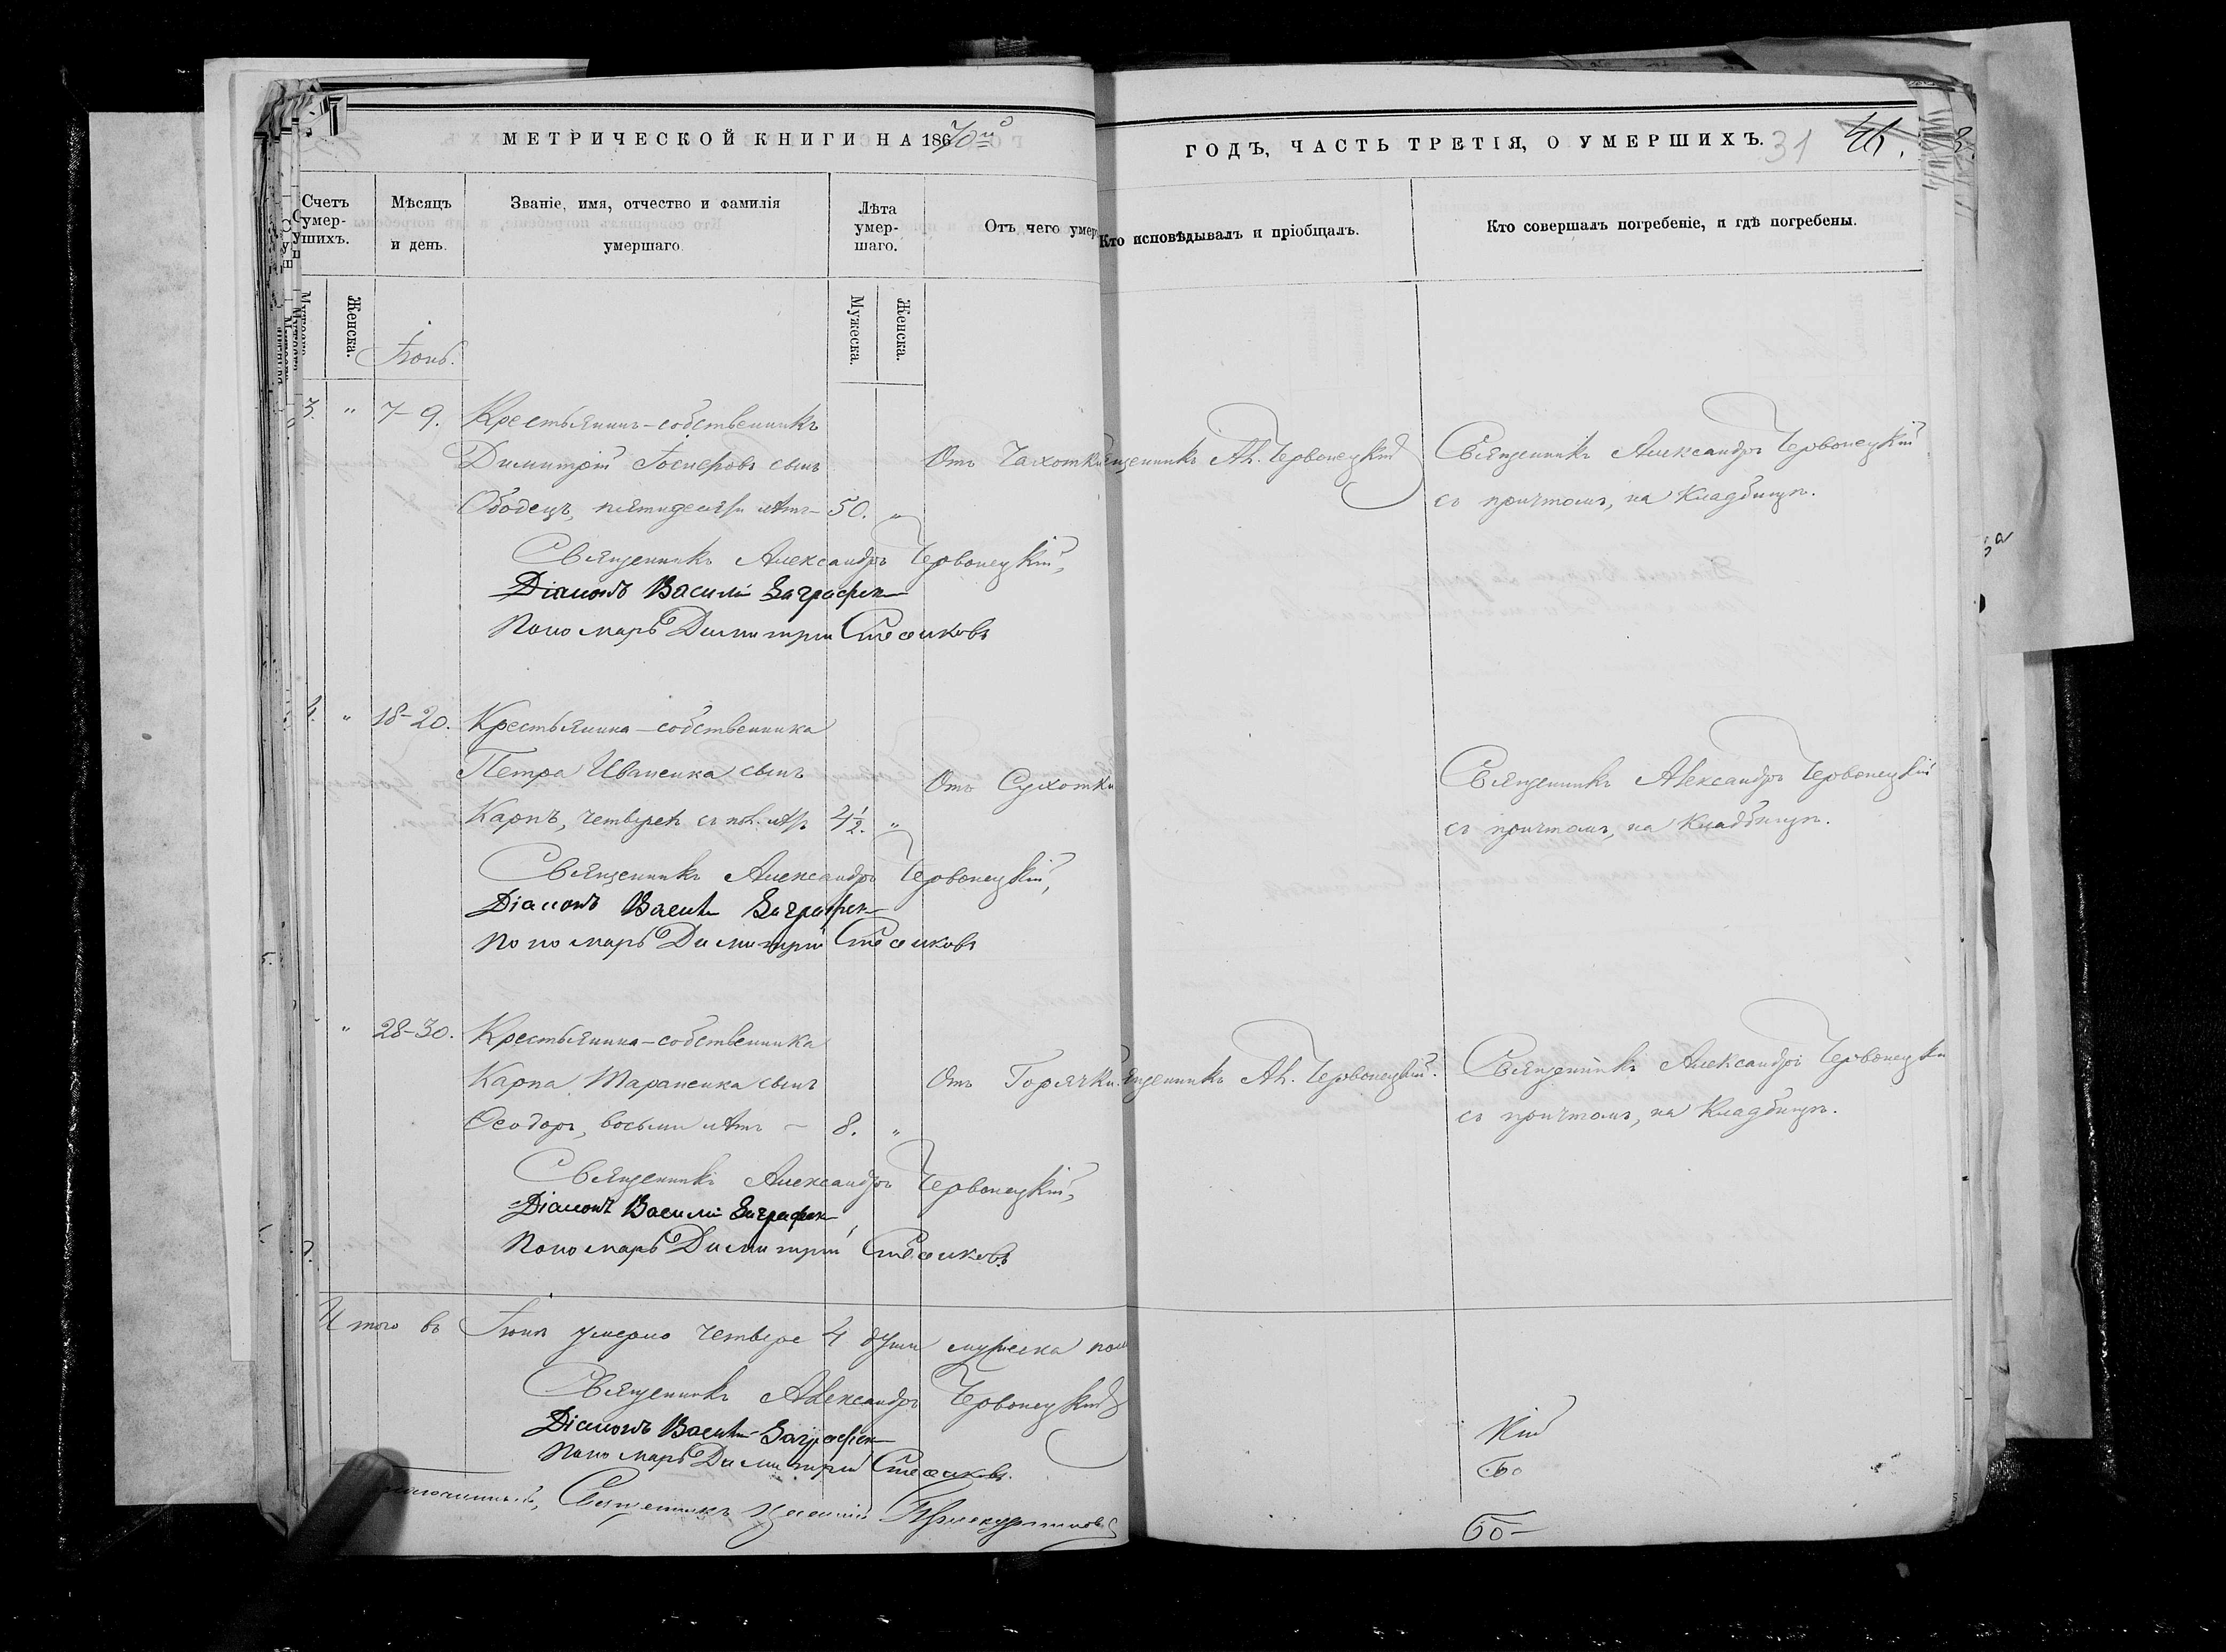 МЕТРИЧЕСКОЙ КНИГИ НА 1870й
ГОДЪ, ЧАСТЬ ТРЕТІЯ, О УМЕРШИХЪ. 31
Счетъ умер-шихъ.
Мѣсяцъ и день.
Званіе, имя, отчество и фамилія умершаго.
Лѣта умер-шаго.
Отъ чего умер
Кто исповѣдывалъ и пріобщалъ.
Кто совершалъ погребеніе, и гдѣ погребены.
Женска.
Мужеска.
Женска.
Іюнь.
3. " 7-9. Крестьянинъ-собственникъ
Димитрій Іосифовъ сынъ
Ободецъ, пятидесяти лѣтъ - 50. "
Отъ Чахотки
щенникъ Ал. Червонецкій
Священникъ Александръ Червонецкій
съ причтомъ, на Кладбищѣ.
Священникъ Александръ Червонецкій,
Діаконъ Василій
Пономарь Димитрій
4. " 18-20. Крестьянина-собственника
Петра Иваненка сынъ
Карпъ, четырехъ съ пол. лѣтъ 4½. "
Отъ Сухотки
Священникъ Александръ Червонецкій
съ причтомъ, на Кладбищѣ.
Священникъ Александръ Червонецкій,
Діаконъ Василій
Пономарь Димитрій
" 28-30. Крестьянина-собственника
Карпа Тараненка сынъ
Ѳеодоръ, восьми лѣтъ - 8. "
Отъ Горячки
щенникъ Ал. Червонецкій.
Священникъ Александръ Червонецкі
съ причтомъ, на Кладбищѣ.
Священникъ Александръ Червонецкій,
Діаконъ Василій
Пономарь Димитрій
Итого въ Іюнѣ умерло четыре 4 души мужеска пол
Священникъ Александръ Червонецкій
Діаконъ Василій
Пономарь Димитрій
Священникъ
кій